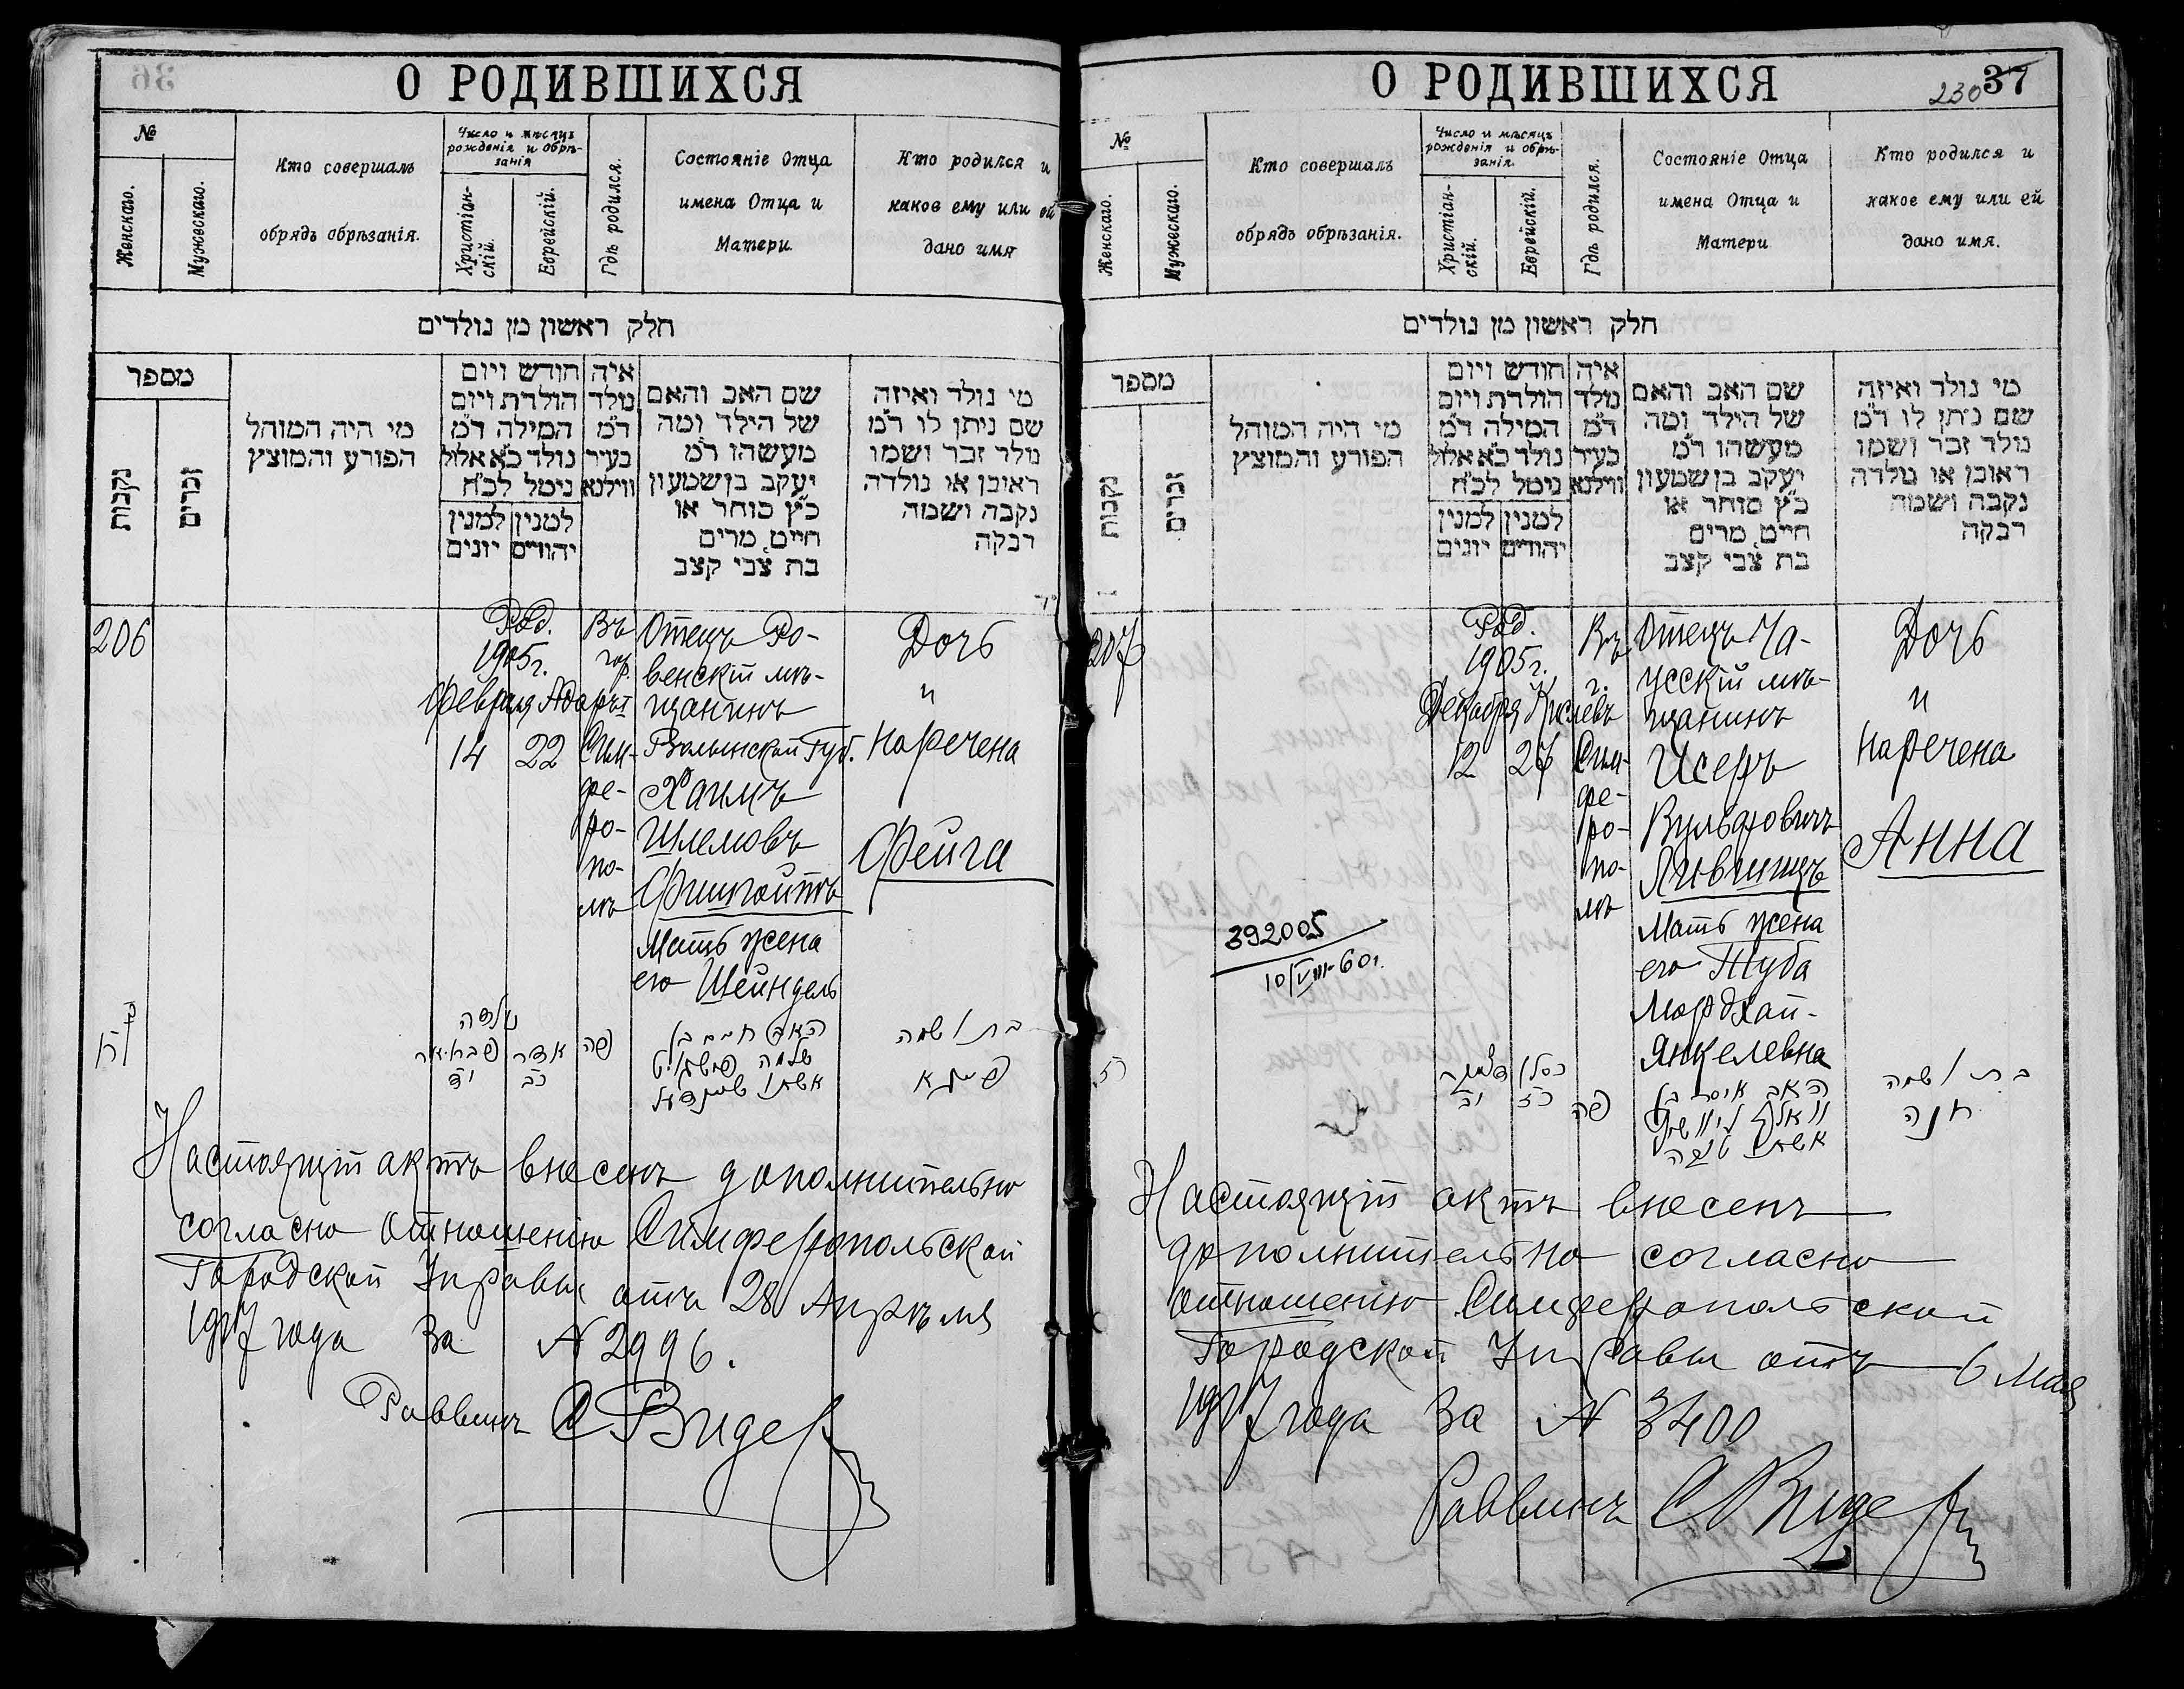 О РОДИВШИХСЯ
№
Женскаго.
Мужескаго.
Кто совершалъ
обрядъ обрѣзанія.
Число и мѣсяцъ
рожденія и обрѣ-
занія
Христіан-
скій.
Еврейскій.
Гдѣ родился.
Состояніе Отца
имена Отца и
Матери.
Кто родился и
какое ему или ей
дано имя
חלק ראשון מן נולדים
מספר
נקבות
זכרים
מי היה המוהל
הפורע והמוצץ
חודש ויום
הולדת ויום
המילה ד״מ
נולד כ״א אלול
ניטל לכ״ח
למנין למנין
יהודים יונים
איה
נולד
ד״מ
בעיר
ווילנא
שם האב והאם
של הילד ומה
מעשהו ד״מ
יעקב בן שמעון
כ״ץ סוחר או
חייט, מרים
בת צבי קצב
מי נולד ואיזה
שם ניתן לו ד״מ
נולד זכר ושמו
ראובן או נולדה
נקבה ושמה
רבקה
206
Род.
1905 г.
Февраля Адаръ I
14 22
Въ
гор.
Сим-
фе-
ро-
по-
лѣ
Отецъ Ро-
венскій мѣ-
щанинъ
Волынской Губ.
Хаимъ
Шлемовъ
Фишгойтъ
Мать жена
его Шейндель
Дочь
и
наречена
Фейга
נולדה
פברואר אדר
י״ד כ״ב
פה
האב חיים בן
שלמה פישגויט
אשתו שיינדעל
בת ושמה
פייגא
Настоящій актъ внесенъ дополнительно
согласно отношенію Симферопольской
Городской Управы отъ 28 Апрѣля
1917 года за № 2996.
Раввинъ
О РОДИВШИХСЯ
230 37
№
Женскаго.
Мужескаго.
Кто совершалъ
обрядъ обрѣзанія.
Число и мѣсяцъ
рожденія и обрѣ-
занія.
Христіан-
скій.
Еврейскій.
Гдѣ родился.
Состояніе Отца
имена Отца и
Матери
Кто родился и
какое ему или ей
дано имя.
חלק ראשון מן נולדים
מספר
נקבות
זכרים
מי היה המוהל
הפורע והמוצץ
חודש ויום
הולדת ויום
המילה ד״מ
נולד כ״א אלול
ניטל לכ״ח
למנין למנין
יהודים יונים
איה
נולד
ד״מ
בעיר
ווילנא
שם האב והאם
של הילד ומה
מעשהו ד״מ
יעקב בן שמעון
כ״ץ סוחר או
חייט, מרים
בת צבי קצב
מי נולד ואיזה
שם ניתן לו ד״מ
נולד זכר ושמו
ראובן או נולדה
נקבה ושמה
רבקה
207
392005
10/VIII-60 г.
Род.
1905 г.
Декабря Кислевъ
12 27
Въ
г.
Сим-
фе-
ро-
по-
лѣ
Отецъ Ча-
усскій мѣ-
щанинъ
Исеръ
Вульфовичъ
Лившицъ
Мать жена
его Туба
Мордхай-
Янкелевна
Дочь
и
наречена
Анна
דצמבר כסלו
י״ב כ״ז
פה
האב איסר בן
וואלף ליוושיץ
אשתו טובה
בת ושמה
חנה
Настоящій актъ внесенъ
дополнительно согласно
отношенію Симферопольской
Городской Управы отъ 6 Мая
1917 года за № 3400
Раввинъ